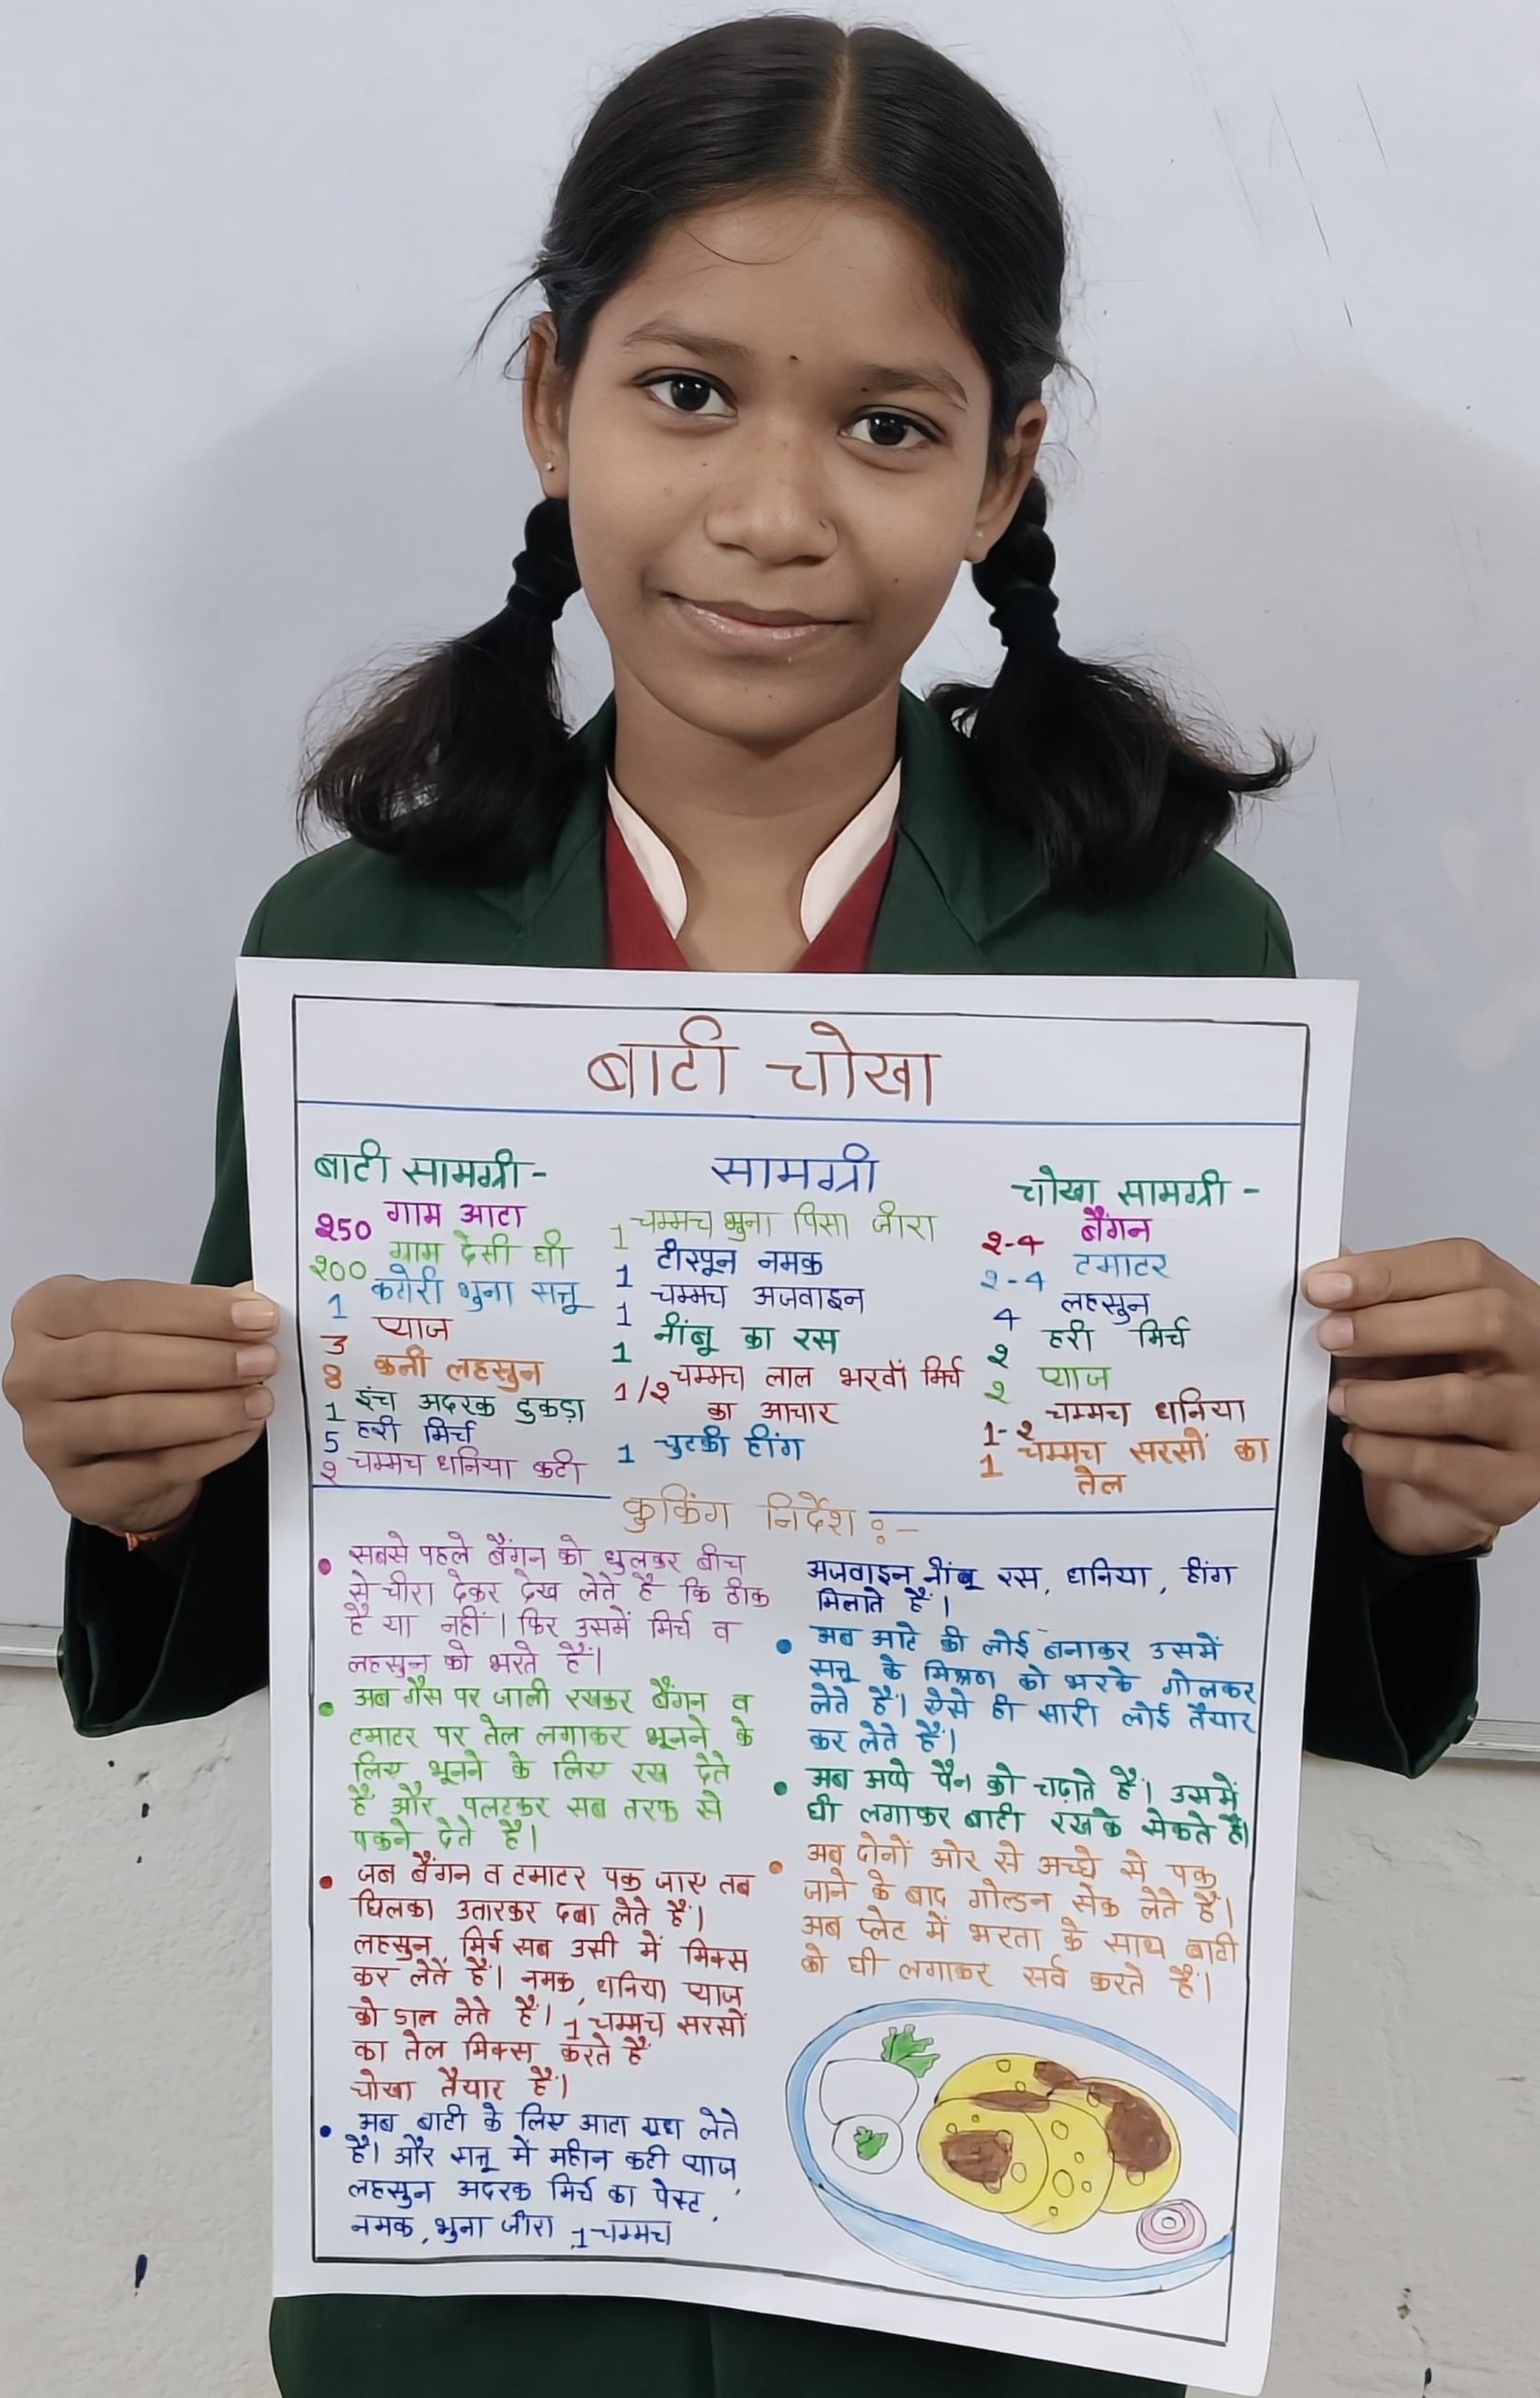 बाटी चोखा
बाटी सामग्री -
250 गाम आटा
200 ग्राम देसी घी
1 कटोरी भुना सत्तू
3 प्याज
8 कनी लहसुन
1 इंच अदरक टुकड़ा
5 हरी मिर्च
2 चम्मच धनिया कटी
सामग्री
1 चम्मच भुना पिसा जीरा
1 टीस्पून नमक
1 चम्मच अजवाइन
1 नींबू का रस
1/2 चम्मच लाल भरवाँ मिर्च
का आचार
1 चुटकी हींग
चोखा सामग्री -
2-4 बैंगन
2-4 टमाटर
4 लहसुन
2 हरी मिर्च
2 प्याज
1-2 चम्मच धनिया
1 चम्मच सरसों का
तेल
कुकिंग निर्देश :-
• सबसे पहले बैंगन को धुलकर बीच
से चीरा देकर देख लेते है कि ठीक
है या नहीं। फिर उसमें मिर्च व
लहसुन को भरते हैं।
• अब गैस पर जाली रखकर बैंगन व
टमाटर पर तेल लगाकर भूनने के
लिए भूनने के लिए रख देते
हैं और पलटकर सब तरफ से
पकने देते है।
• जब बैंगन व टमाटर पक जाए तब
छिलका उतारकर दबा लेते हैं।
लहसुन, मिर्च सब उसी में मिक्स
कर लेतें हैं। नमक, धनिया प्याज
को डाल लेते हैं। 1 चम्मच सरसों
का तेल मिक्स करते हैं
चोखा तैयार हैं।
• अब बाटी के लिए आटा लेते
है। और सत्तू में महीन कटी प्याज,
लहसुन अदरक मिर्च का पेस्ट,
नमक, भुना जीरा, 1 चम्मच
अजवाइन नींबू रस, धनिया, हींग
मिलाते हैं।
• अब आटे की लोई बनाकर उसमें
सत्तू के मिश्रण को भरके गोलकर
लेते हैं। ऐसे ही सारी लोई तैयार
कर लेते हैं।
• अब अप्पे पैन को चढ़ाते है। उसमें
घी लगाकर बाटी रखके सेकते है।
• अब दोनों ओर से अच्छे से पक
जाने के बाद गोल्डन सेक लेते हैं।
अब प्लेट में भरता के साथ बाटी
को घी लगाकर सर्व करते हैं।